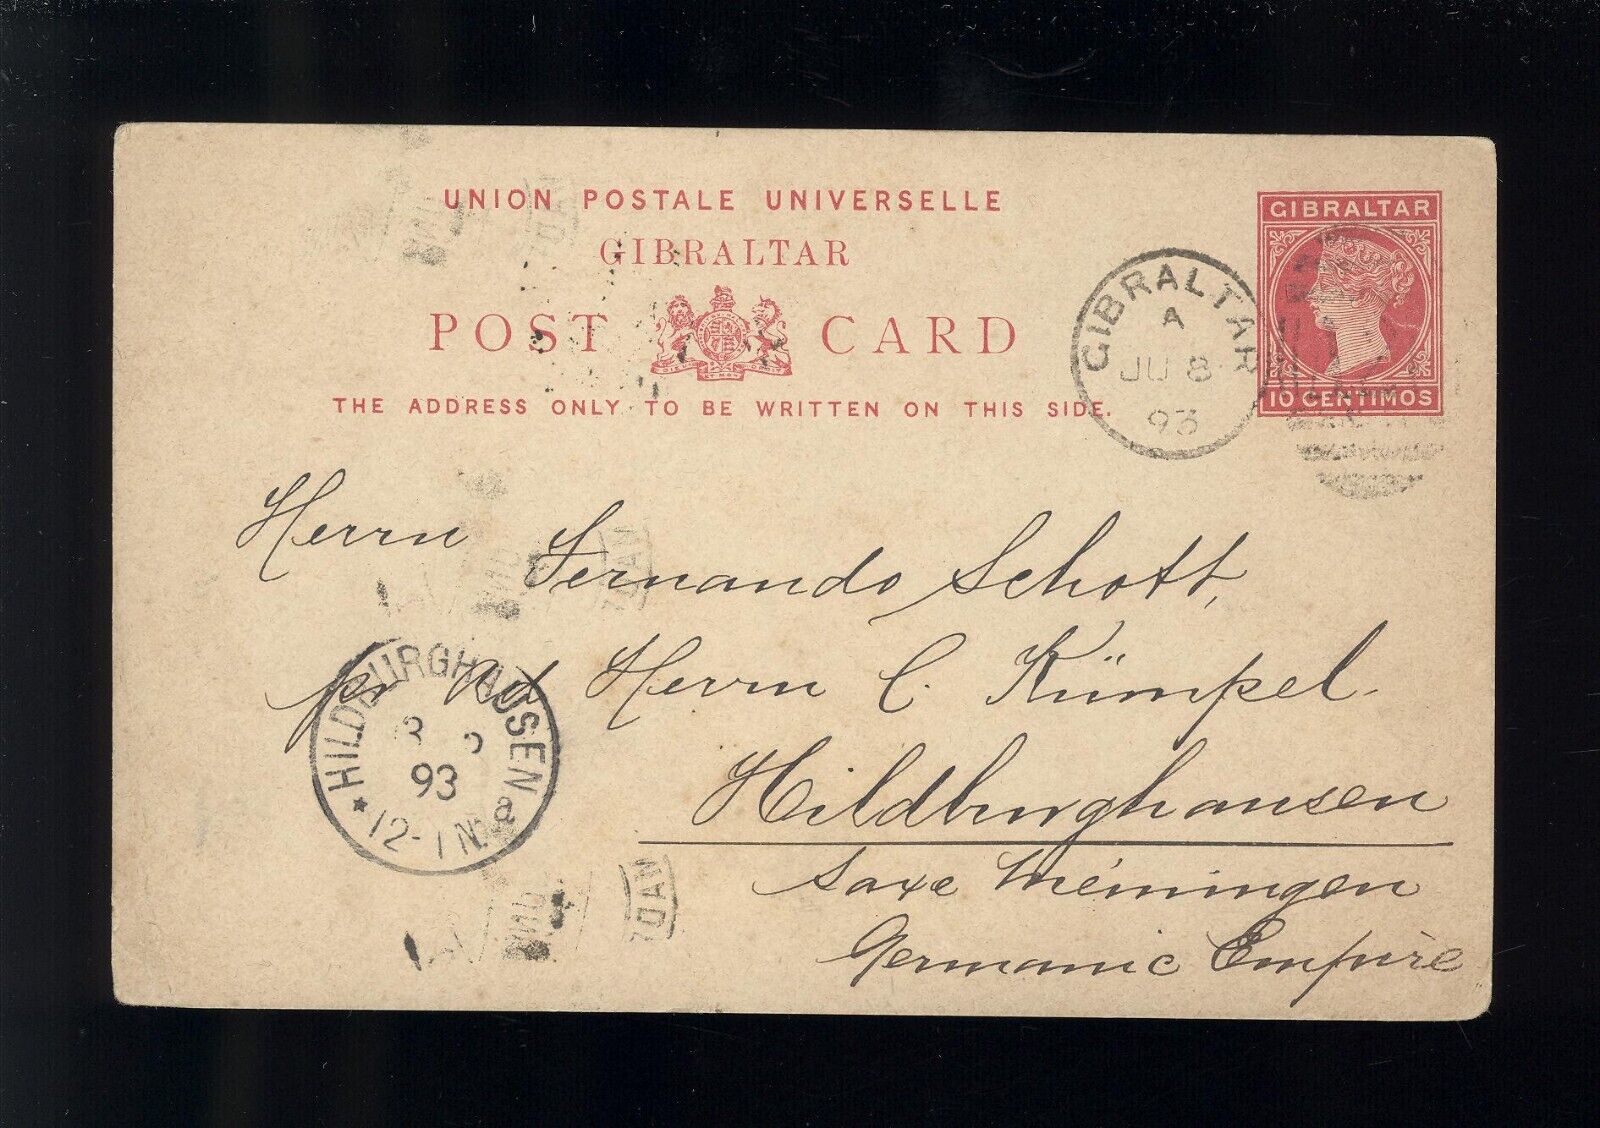 UNION POSTALE UNIVERSELLE
GIBRALTAR
POST CARD
THE ADDRESS ONLY TO BE WRITTEN ON THIS SIDE.
GIBRALTAR
10 CENTIMOS
GIBRALTAR
A
JU 8
93
Herrn Fernando Schott,
pr Ad Herrn C. Kümpel.
Hildburghausen
Saxe Meiningen
Germanic Empire
HILDBURGHAUSEN
93
12-1N. a